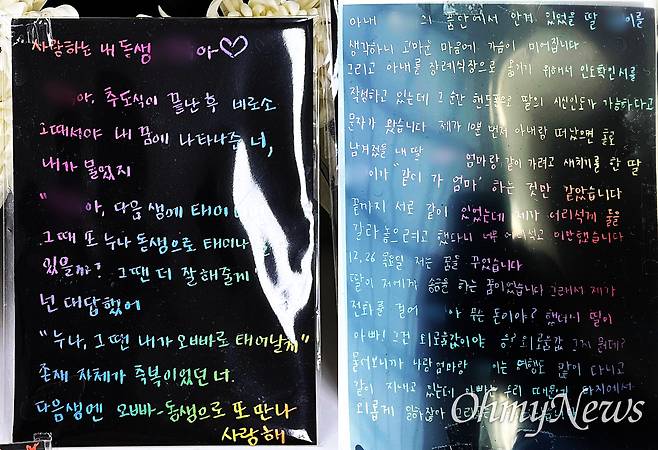 사랑하는 내 동생 아♡
아, 추도식이 끝난 후 비로소
그때서야 내 꿈에 나타나준 너,
내가 물었지
" 아, 다음 생에 태어
그때 또 누나 동생으로 태어나
있을까? 그땐 더 잘해줄게"
넌 대답했어
"누나, 그땐 내가 오빠로 태어날게"
존재 자체가 축복이었던 너.
다음생엔 오빠-동생으로 또 만나
사랑해
아내 의 품안에서 안겨 있었을 딸 이를
생각하니 고마운 마음에 가슴이 미어집니다
그리고 아내를 장례식장으로 옮기기 위해서 인도확인서를
작성하고 있는데 그 순간 핸드폰으로 딸의 시신인도가 가능하다고
문자가 왔습니다 제가 먼저 아내랑 떠났으면 홀로
남겨졌을 내 딸 엄마랑 같이 가려고 새치기를 한 딸
이가 "같이 가 엄마" 하는 것만 같았습니다
끝까지 서로 같이 있었는데 제가 어리석게 둘을
갈라 놓으려고 했다니 너무 어리석고 미안했습니다
12.26 목요일 저는 꿈을 꾸었습니다
딸이 저에게 송금을 하는 꿈이었습니다 그래서 제가
전화를 걸어 야 무슨 돈이야? 했더니 딸이
아빠! 그건 외로움값이야 응? 외로움값 그게 뭔데?
물어보니까 나랑 엄마랑 이는 여행도 같이 다니고
같이 지내고 있는데 아빠는 우리 때문에 타지에서
외롭게 일하잖아
OhmyNews